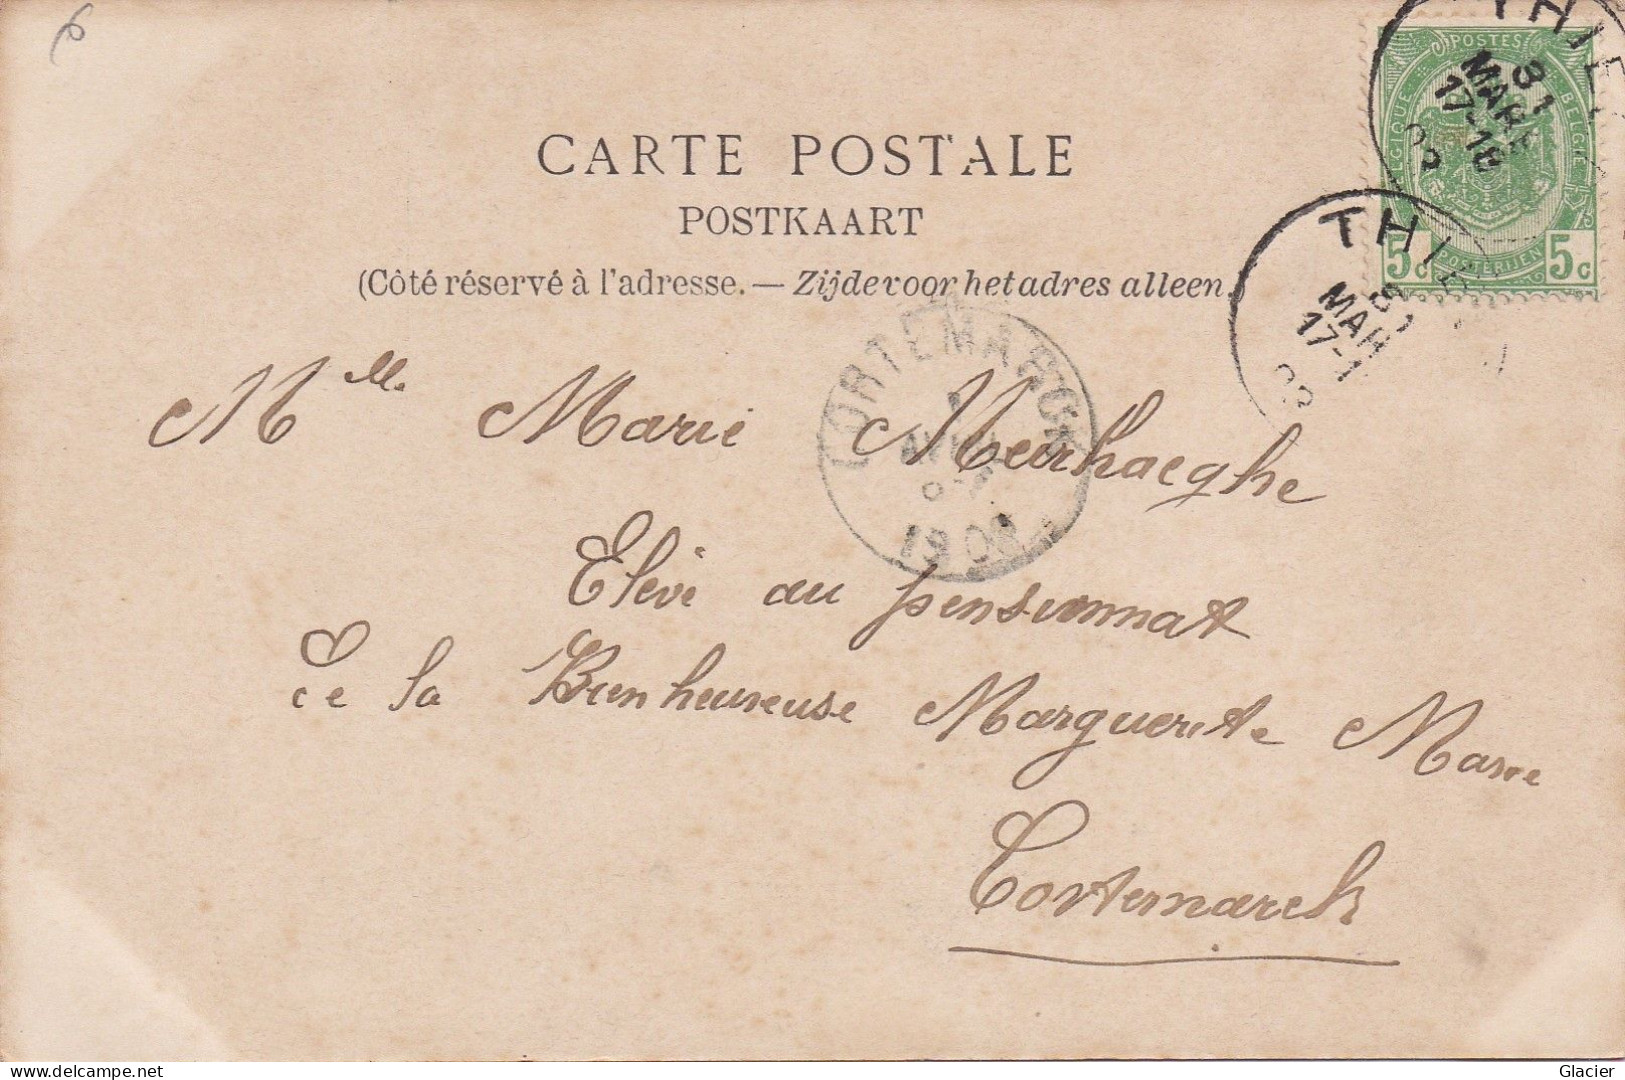 CARTE POSTALE
POSTKAART
(Côté réservé à l'adresse. — Zijde voor het adres alleen.)
POSTES
BELGIQUE BELGIË
POSTERIJEN
5c 5c
THIE
31
MARS
17-18
02
THIE
31
MAR
17-1
CORTEMARCK
1
AVRIL
190
Mlle. Marie Meurhaeghe
Elève au pensionnat
de la Bienheureuse Marguerite Marie
Cortemarck
delcampe.net
Glacier